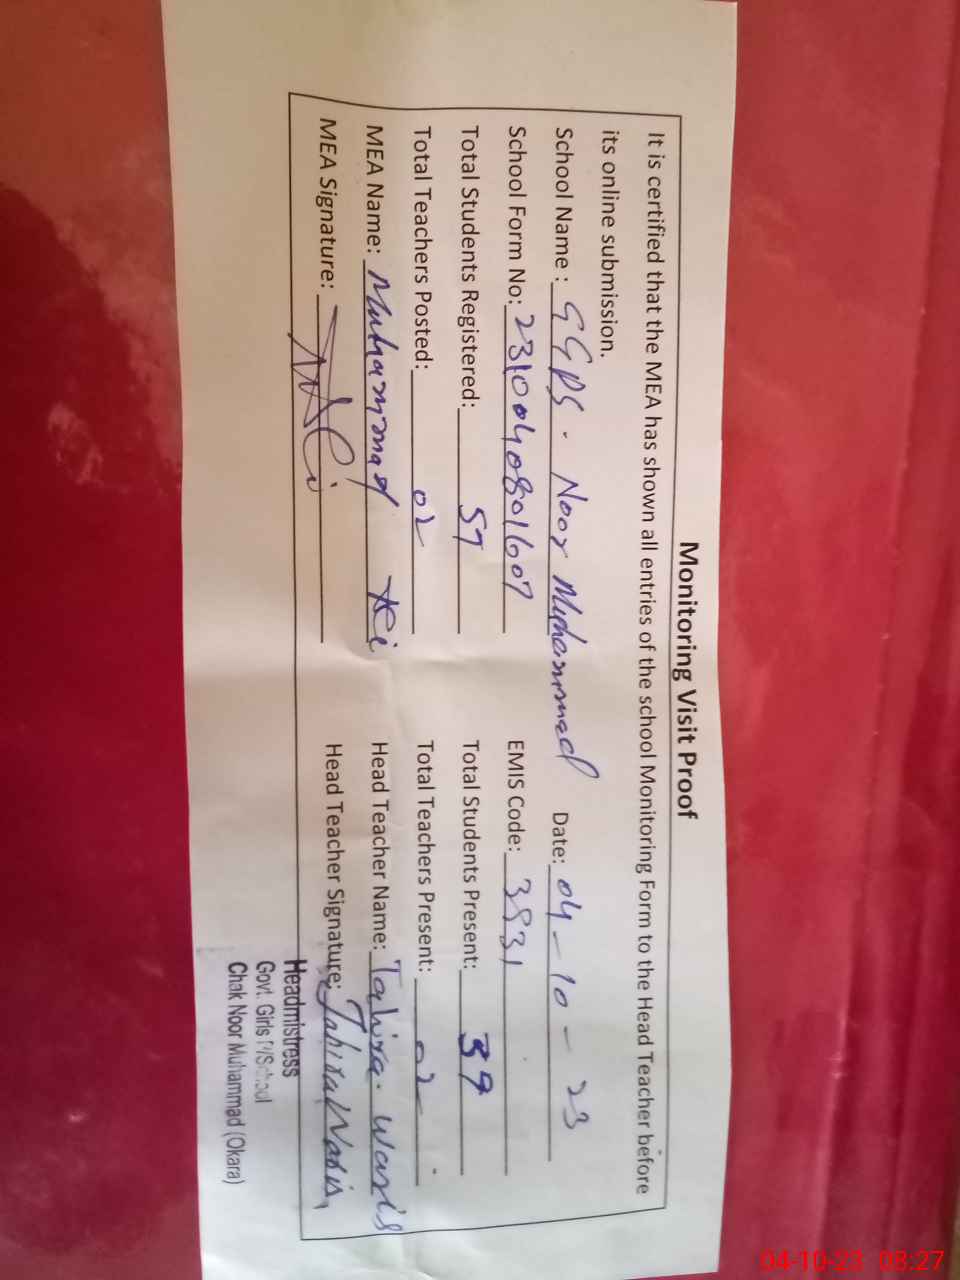 Monitoring Visit Proof
It is certified that the MEA has shown all entries of the school Monitoring Form to the Head Teacher before
its online submission.
School Name : GGPS. Noor Muhammad Date: 04-10-23
School Form No: 2310040801607 EMIS Code: 3831
Total Students Registered: 57 Total Students Present: 37
Total Teachers Posted: 02 Total Teachers Present: 02
MEA Name: Muhammad Ali Head Teacher Name: Tahira Waris
MEA Signature: Head Teacher Signature: Tahira Waris
Headmistress
Govt. Girls P/School
Chak Noor Muhammad (Okara)
04-10-23 08:27